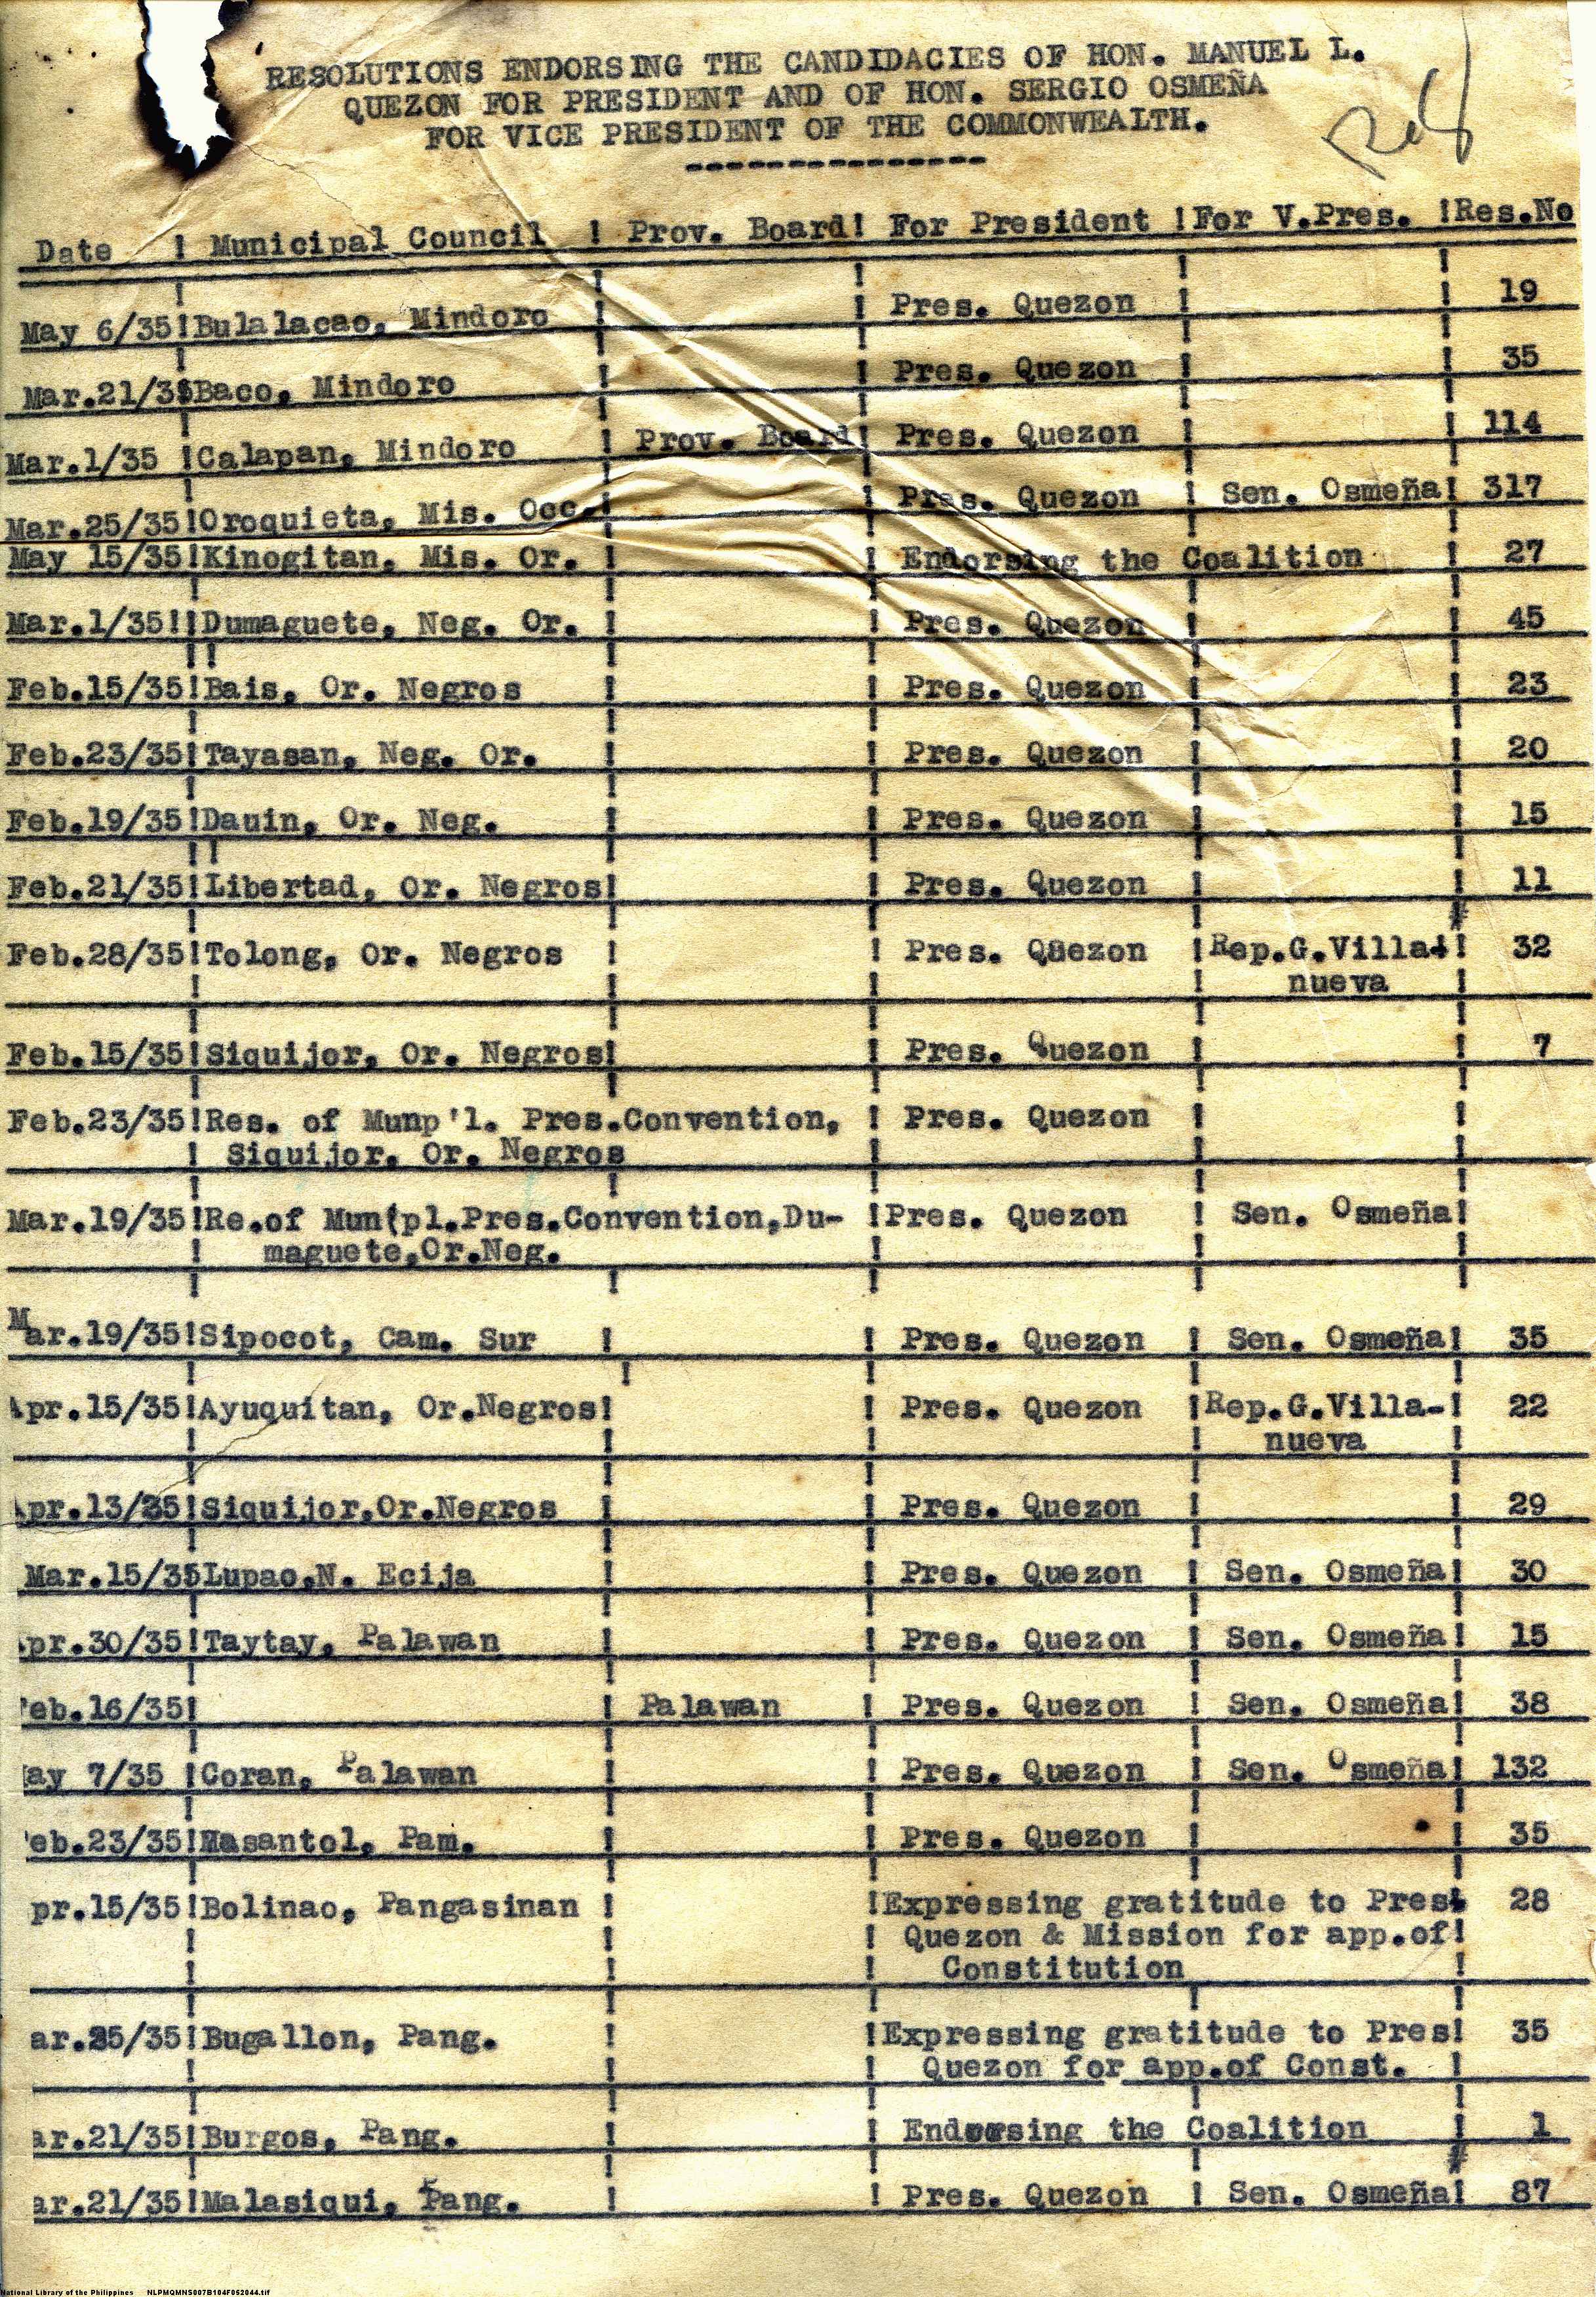 RESOLUTIONS ENDORSING THE CANDIDACIES OF HON. MANUEL L.
QUEZON FOR PRESIDENT AND OF HON. SERGIO OSMEÑA
FOR VICE PRESIDENT OF THE COMMONWEALTH.
----------------
Date ! Municipal Council ! Prov. Board! For President !For V.Pres. !Res.No
May 6/35!Bulalacao, Mindoro ! ! Pres. Quezon ! ! 19
Mar.21/35Baco, Mindoro ! ! Pres. Quezon ! ! 35
Mar.1/35 !Calapan, Mindoro ! Prov. Board! Pres. Quezon ! ! 114
Mar.25/35!Oroquieta, Mis. Occ.! ! Pres. Quezon ! Sen. Osmeña! 317
May 15/35!Kinogitan, Mis. Or. ! ! Endorsing the Coalition ! 27
Mar.1/35!!Dumaguete, Neg. Or. ! ! Pres. Quezon ! ! 45
Feb.15/35!Bais, Or. Negros ! ! Pres. Quezon ! ! 23
Feb.23/35!Tayasan, Neg. Or. ! ! Pres. Quezon ! ! 20
Feb.19/35!Dauin, Or. Neg. ! ! Pres. Quezon ! ! 15
Feb.21/35!Libertad, Or. Negros! ! Pres. Quezon ! ! 11
Feb.28/35!Tolong, Or. Negros ! ! Pres. Quezon !Rep.G.Villa-! 32
nueva
Feb.15/35!Siquijor, Or. Negros! ! Pres. Quezon ! ! 7
Feb.23/35!Res. of Munp'l. Pres.Convention, ! Pres. Quezon ! !
! Siquijor. Or. Negros
Mar.19/35!Re.of Mun(pl.Pres.Convention,Du- !Pres. Quezon ! Sen. Osmeña!
! maguete,Or.Neg.
Mar.19/35!Sipocot, Cam. Sur ! ! Pres. Quezon ! Sen. Osmeña! 35
Apr.15/35!Ayuquitan, Or.Negros! ! Pres. Quezon !Rep.G.Villa-! 22
nueva
Apr.13/35!Siquijor,Or.Negros ! ! Pres. Quezon ! ! 29
Mar.15/35Lupao,N. Ecija ! ! Pres. Quezon ! Sen. Osmeña! 30
pr.30/35!Taytay, Palawan ! ! Pres. Quezon ! Sen. Osmeña! 15
eb.16/35! ! Palawan ! Pres. Quezon ! Sen. Osmeña! 38
ay 7/35 !Coran, Palawan ! ! Pres. Quezon ! Sen. Osmeña! 132
eb.23/35!Masantol, Pam. ! ! Pres. Quezon ! ! 35
pr.15/35!Bolinao, Pangasinan ! !Expressing gratitude to Pres! 28
Quezon & Mission for app.of!
Constitution
ar.25/35!Bugallon, Pang. ! !Expressing gratitude to Pres! 35
Quezon for app.of Const. !
ar.21/35!Burgos, Pang. ! ! Endorsing the Coalition ! 1
ar.21/35!Malasiqui, Pang. ! ! Pres. Quezon ! Sen. Osmeña! 87
National Library of the Philippines NLPMQMNS007B104F052044.tif